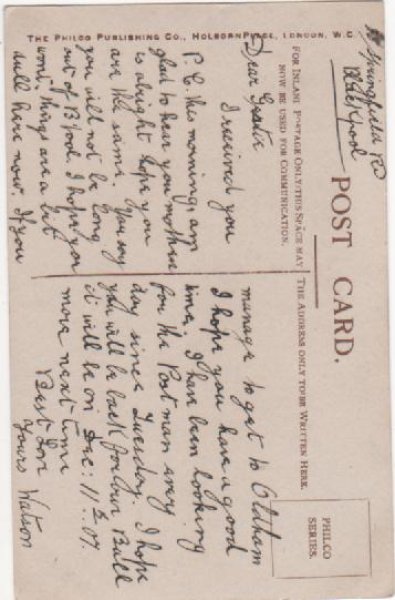 THE PHILCO PUBLISHING CO., HOLBORN PLACE, LONDON, W.C.
POST CARD.
FOR INLAND POSTAGE ONLY THIS SPACE MAY
NOW BE USED FOR COMMUNICATION.
THE ADDRESS ONLY TO BE WRITTEN HERE.
PHILCO
SERIES.
Springfield Rd
Blackpool
Dear
I received you
P.C. this morning, am
glad to hear you mother
is alright hope you
are the same. You say
you will not be long
out of B'pool. I hope you
wont. things are a bit
dull here now. If you
manage to get to Oldham
I hope you have a good
time. I have been looking
for the Postman every
day since Tuesday. I hope
you will be back for our Ball
it will be on Dec: 11th 07.
more next time
Best Love
Yours Watson